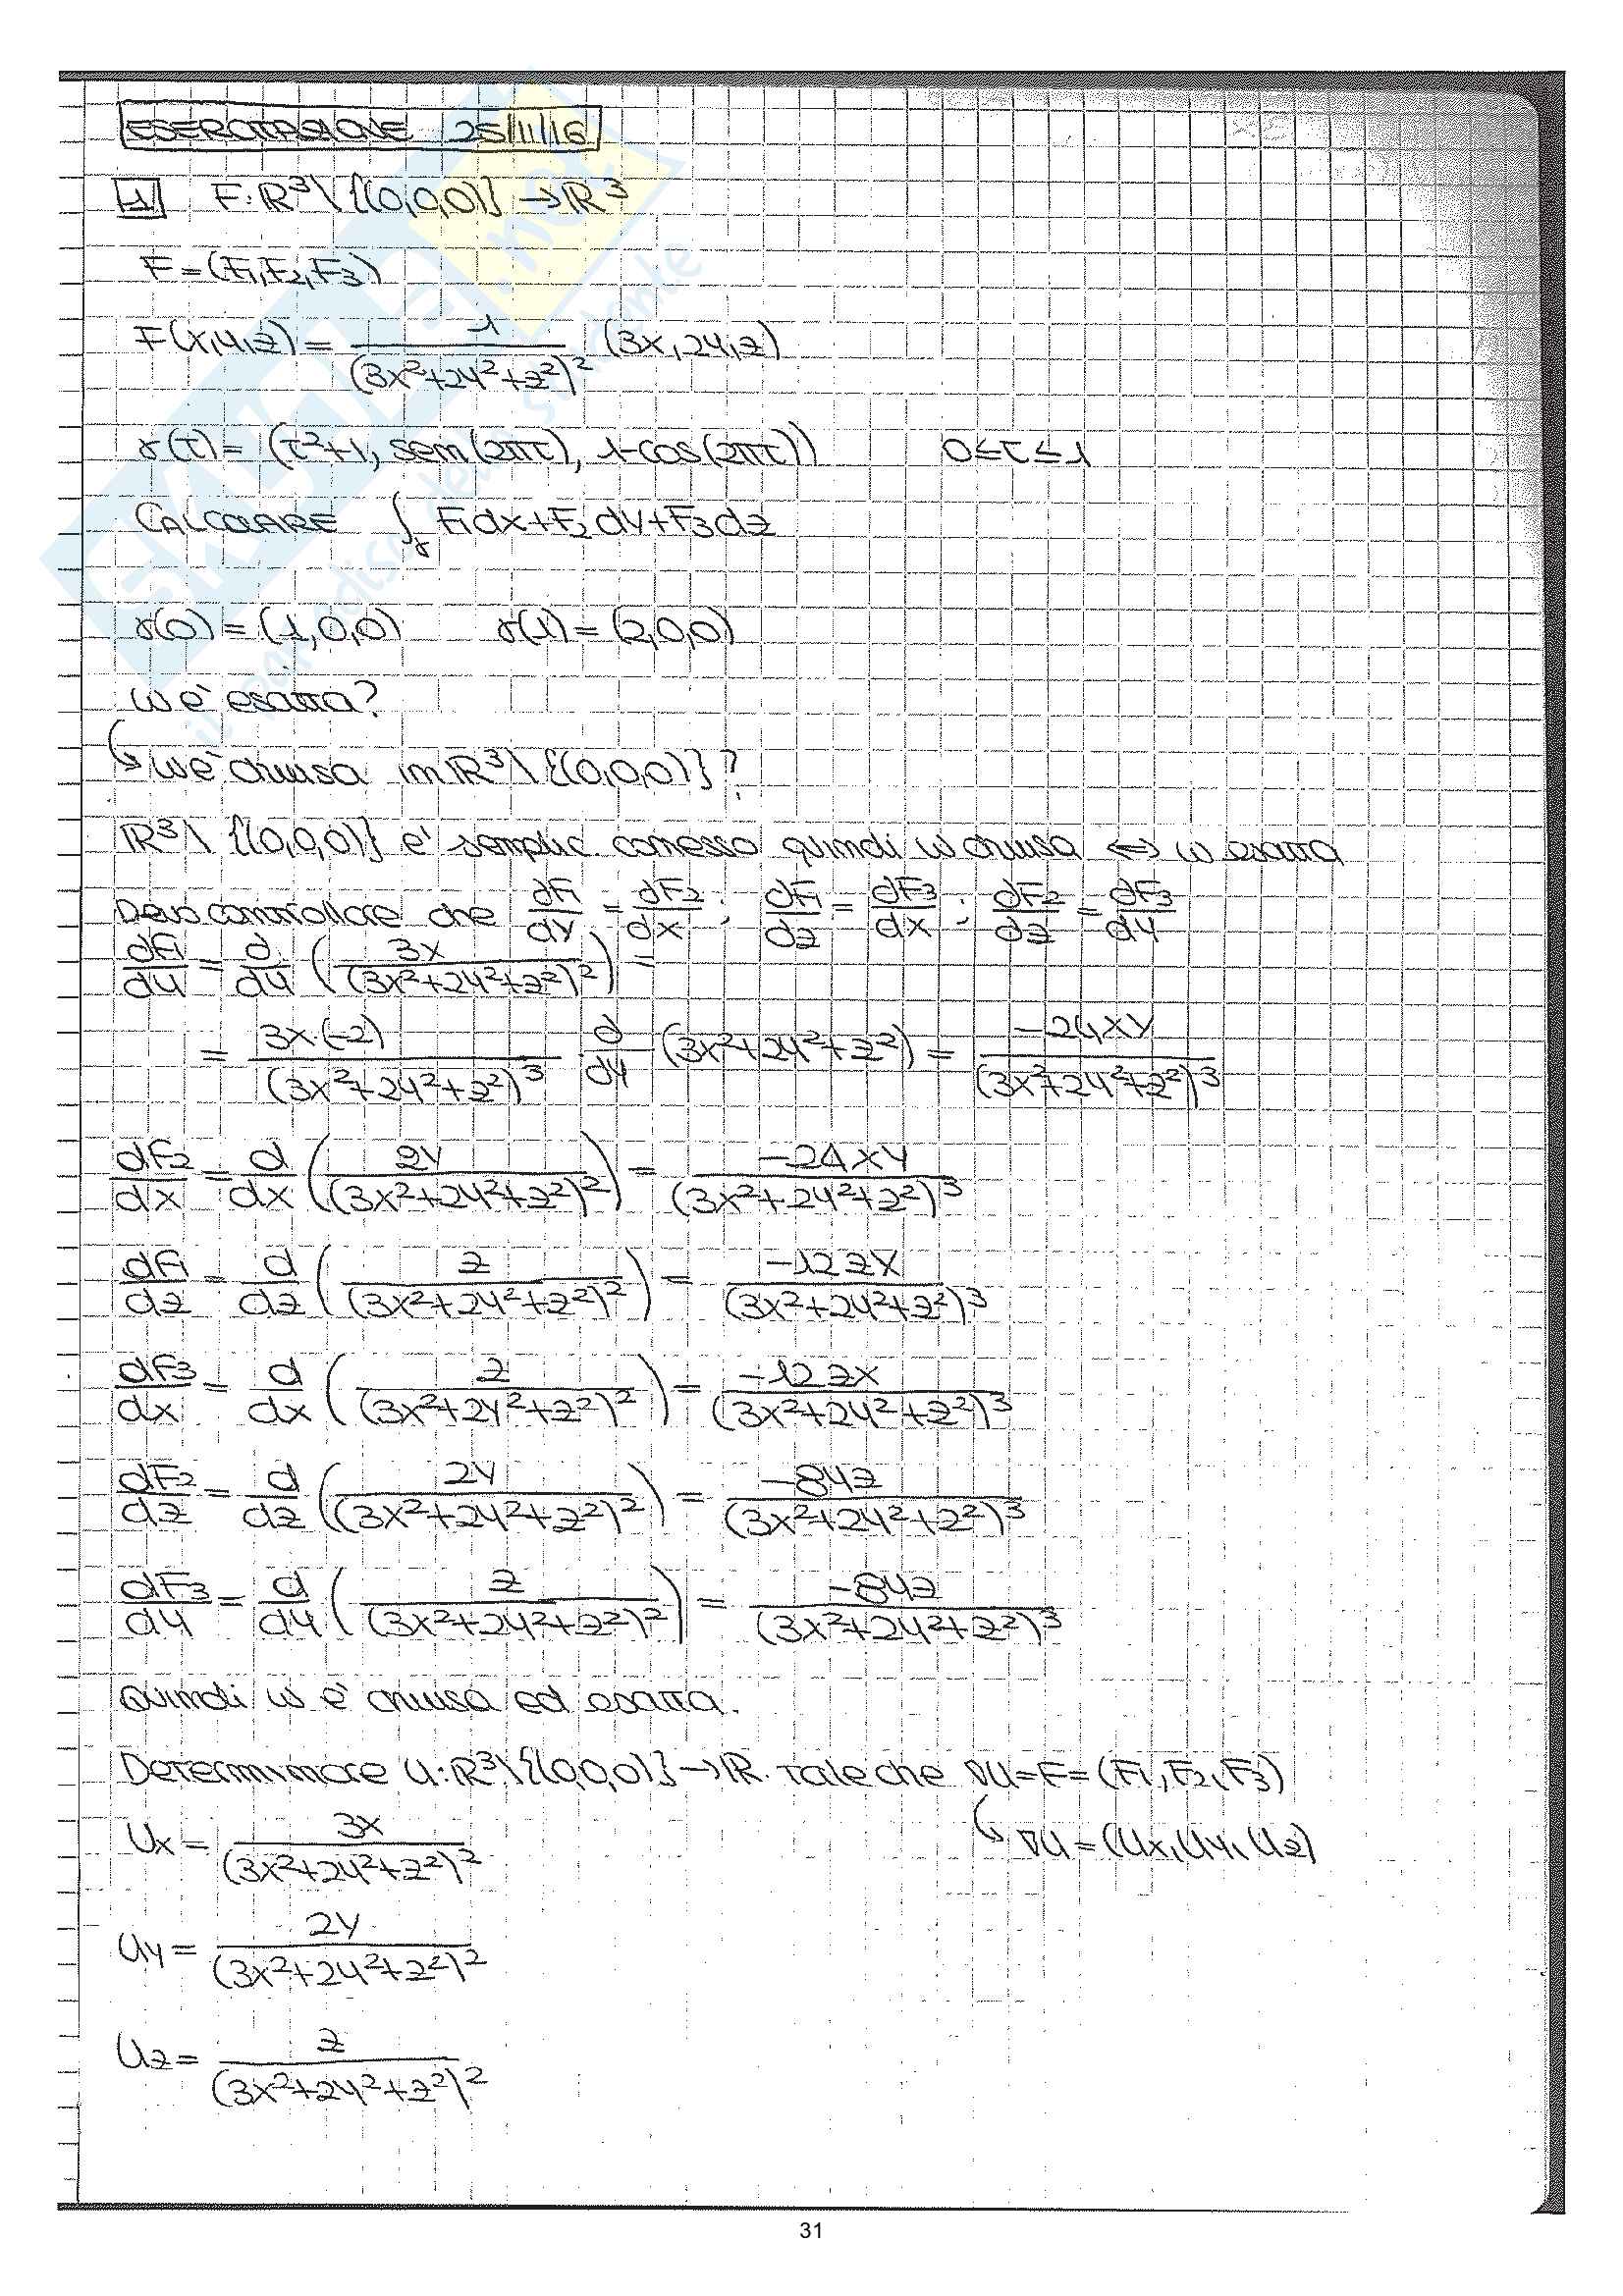 ESERCITAZIONE 25/11/16
1 F: ℝ³\{(0,0,0)} → ℝ³
F = (F1, F2, F3)
F(x,y,z) = 1/(3x²+2y²+z²)² (3x, 2y, z)
γ(t) = (t²+1, sen(2πt), 1-cos(2πt)) 0≤t≤1
CALCOLARE ∫γ F1dx+F2dy+F3dz
γ(0) = (1,0,0) γ(1) = (2,0,0)
ω è esatta?
↳ ω è chiusa in ℝ³\{(0,0,0)}?
ℝ³\{(0,0,0)} è semplic. connesso quindi ω chiusa ⟺ ω esatta
Devo controllare che dF1/dy = dF2/dx ; dF1/dz = dF3/dx ; dF2/dz = dF3/dy
dF1/dy = d/dy (3x/(3x²+2y²+z²)²) =
= 3x·(-2)/(3x²+2y²+z²)³ d/dy (3x²+2y²+z²) = -24xy/(3x²+2y²+z²)³
dF2/dx = d/dx (2y/(3x²+2y²+z²)²) = -24xy/(3x²+2y²+z²)³
dF1/dz = d/dz (z/(3x²+2y²+z²)²) = -12zx/(3x²+2y²+z²)³
dF3/dx = d/dx (z/(3x²+2y²+z²)²) = -12zx/(3x²+2y²+z²)³
dF2/dz = d/dz (2y/(3x²+2y²+z²)²) = -8yz/(3x²+2y²+z²)³
dF3/dy = d/dy (z/(3x²+2y²+z²)²) = -8yz/(3x²+2y²+z²)³
Quindi ω è chiusa ed esatta.
Determinare U: ℝ³\{(0,0,0)} → ℝ tale che ∇U = F = (F1, F2, F3)
Ux = 3x/(3x²+2y²+z²)² ↳ ∇U = (Ux, Uy, Uz)
Uy = 2y/(3x²+2y²+z²)²
Uz = z/(3x²+2y²+z²)²
31